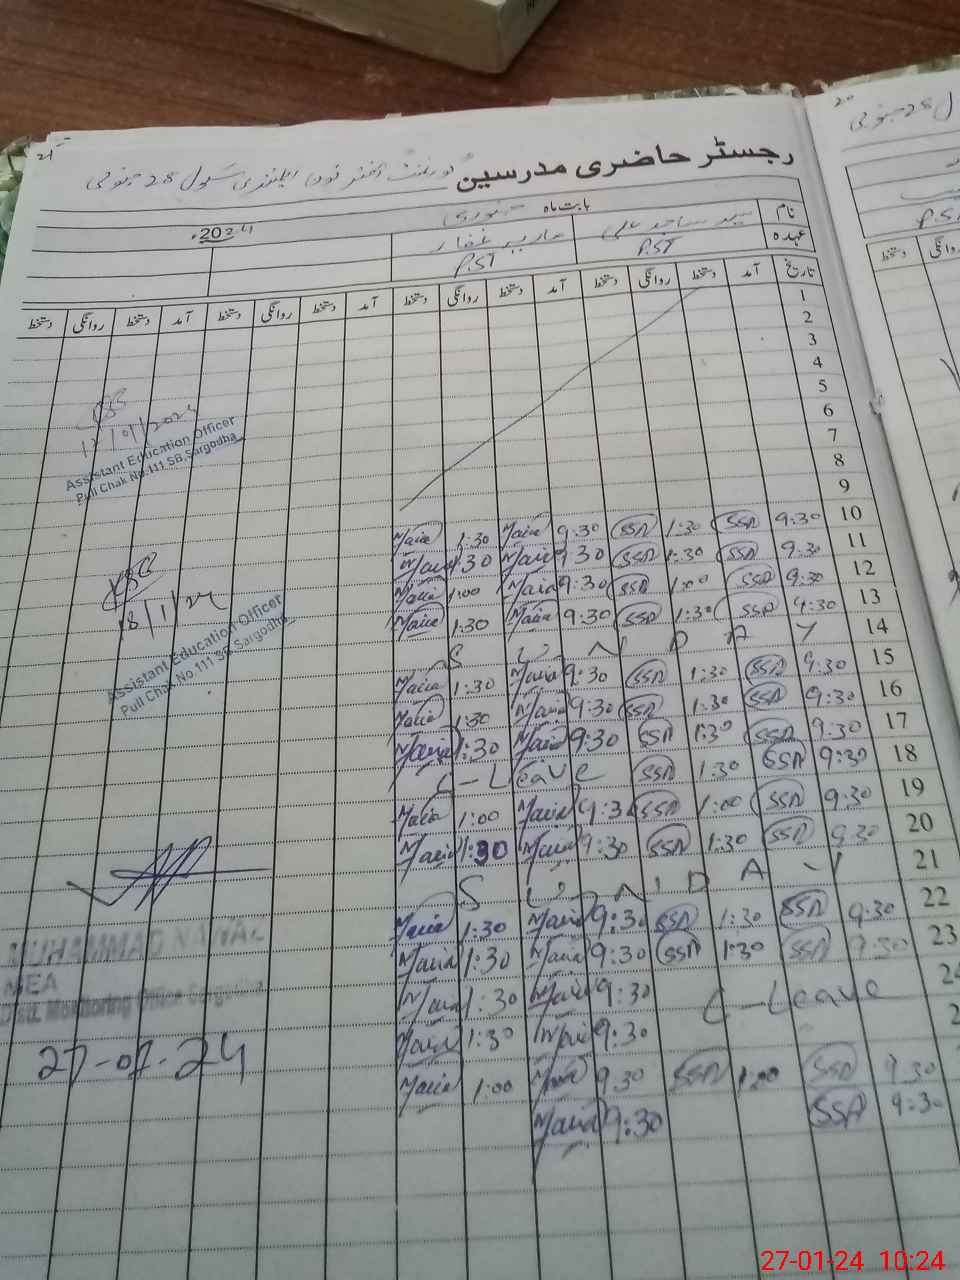 21
رجسٹر حاضری مدرسین
سکول 28 جنوبی
بابت ماہ جنوری 2024ء
نام
عہدہ P.ST P.ST
تاریخ آمد دستخط روانگی دستخط آمد دستخط روانگی دستخط آمد دستخط روانگی دستخط آمد دستخط روانگی دستخط
1
2
3
4
5
6
7
8
9
10 9:30 SSA 1:30 SSA 9:30 Maria 1:30 Maria
11 9:30 SSA 1:30 SSA 9:30 Maria 1:30 Maria
12 9:30 SSA 1:00 SSA 9:30 Maria 1:00 Maria
13 9:30 SSA 1:30 SSA 9:30 Maria 1:30 Maria
14 S U N D A Y
15 9:30 SSA 1:30 SSA 9:30 Maria 1:30 Maria
16 9:30 SSA 1:30 SSA 9:30 Maria 1:30 Maria
17 9:30 SSA 1:30 SSA 9:30 Maria 1:30 Maria
18 9:30 SSA 1:30 SSA C-Leave
19 9:30 SSA 1:00 SSA 9:30 Maria 1:00 Maria
20 9:30 SSA 1:30 SSA 9:30 Maria 1:30 Maria
21 S U N D A Y
22 9:30 SSA 1:30 SSA 9:30 Maria 1:30 Maria
23 9:30 SSA 1:30 SSA 9:30 Maria 1:30 Maria
C-Leave 9:30 Maria 1:30 Maria
9:30 Maria 1:30 Maria
9:30 SSA 1:00 SSA 9:30 Maria 1:00 Maria
9:30 SSA 9:30 Maria
Assistant Education Officer
Pull Chak No.111 SB, Sargodha
18/1/24
Assistant Education Officer
Pull Chak No.111 SB, Sargodha
MUHAMMAD
MEA
Distt. Monitoring Office Sargodha
27-01-24
20
28 جنوبی
P.ST
روانگی دستخط
27-01-24 10:24